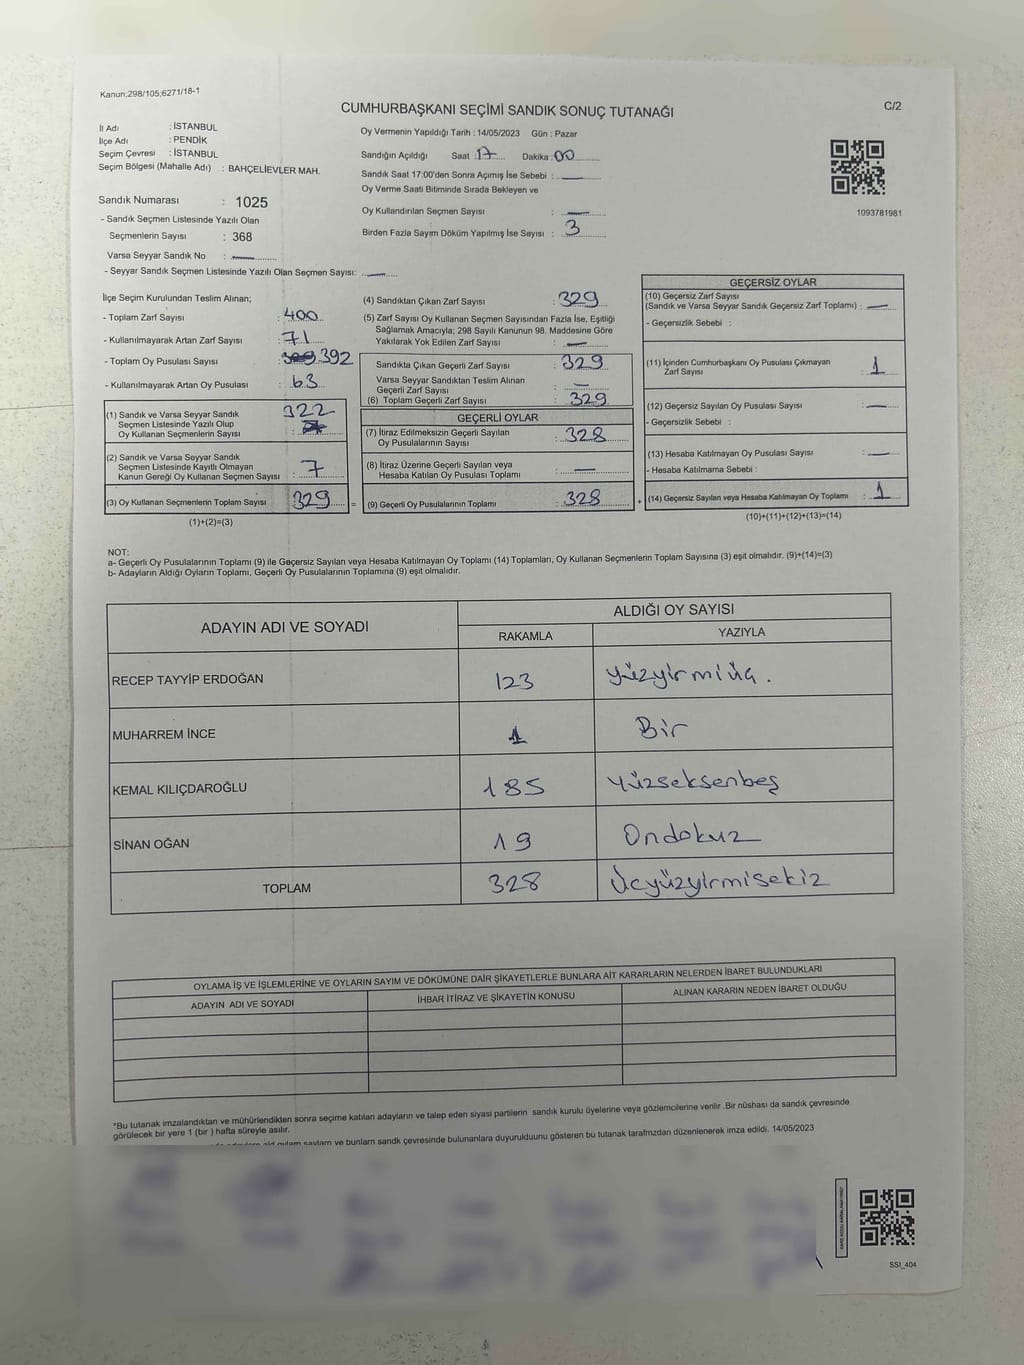 Kanun;298/105;6271/18-1
CUMHURBAŞKANI SEÇİMİ SANDIK SONUÇ TUTANAĞI
C/2
İl Adı : İSTANBUL
İlçe Adı : PENDİK
Seçim Çevresi : İSTANBUL
Seçim Bölgesi (Mahalle Adı) : BAHÇELİEVLER MAH.
Oy Vermenin Yapıldığı Tarih : 14/05/2023 Gün : Pazar
Sandığın Açıldığı Saat : 17 Dakika : 00
Sandık Saat 17:00'den Sonra Açımış İse Sebebi : —
Oy Verme Saati Bitiminde Sırada Bekleyen ve
Oy Kullandırılan Seçmen Sayısı : —
Birden Fazla Sayım Döküm Yapılmış İse Sayısı : 3
1093781981
Sandık Numarası : 1025
- Sandık Seçmen Listesinde Yazılı Olan
Seçmenlerin Sayısı : 368
Varsa Seyyar Sandık No : —
- Seyyar Sandık Seçmen Listesinde Yazılı Olan Seçmen Sayısı: —
İlçe Seçim Kurulundan Teslim Alınan;
- Toplam Zarf Sayısı : 400
- Kullanılmayarak Artan Zarf Sayısı : 71
- Toplam Oy Pusulası Sayısı : 392
- Kullanılmayarak Artan Oy Pusulası : 63
(1) Sandık ve Varsa Seyyar Sandık
Seçmen Listesinde Yazılı Olup
Oy Kullanan Seçmenlerin Sayısı : 322
(2) Sandık ve Varsa Seyyar Sandık
Seçmen Listesinde Kayıtlı Olmayan
Kanun Gereği Oy Kullanan Seçmen Sayısı : 7
(3) Oy Kullanan Seçmenlerin Toplam Sayısı : 329 =
(1)+(2)=(3)
(4) Sandıktan Çıkan Zarf Sayısı : 329
(5) Zarf Sayısı Oy Kullanan Seçmen Sayısından Fazla İse, Eşitliği
Sağlamak Amacıyla; 298 Sayılı Kanunun 98. Maddesine Göre
Yakılarak Yok Edilen Zarf Sayısı : —
Sandıkta Çıkan Geçerli Zarf Sayısı : 329
Varsa Seyyar Sandıktan Teslim Alınan
Geçerli Zarf Sayısı : —
(6) Toplam Geçerli Zarf Sayısı : 329
GEÇERLİ OYLAR
(7) İtiraz Edilmeksizin Geçerli Sayılan
Oy Pusulalarının Sayısı : 328
(8) İtiraz Üzerine Geçerli Sayılan veya
Hesaba Katılan Oy Pusulası Toplamı : —
(9) Geçerli Oy Pusulalarının Toplamı : 328 +
GEÇERSİZ OYLAR
(10) Geçersiz Zarf Sayısı
(Sandık ve Varsa Seyyar Sandık Geçersiz Zarf Toplamı) : —
- Geçersizlik Sebebi :
(11) İçinden Cumhurbaşkanı Oy Pusulası Çıkmayan
Zarf Sayısı : 1
(12) Geçersiz Sayılan Oy Pusulası Sayısı : —
- Geçersizlik Sebebi :
(13) Hesaba Katılmayan Oy Pusulası Sayısı : —
- Hesaba Katılmama Sebebi :
(14) Geçersiz Sayılan veya Hesaba Katılmayan Oy Toplamı : 1
(10)+(11)+(12)+(13)=(14)
NOT:
a- Geçerli Oy Pusulalarının Toplamı (9) ile Geçersiz Sayılan veya Hesaba Katılmayan Oy Toplamı (14) Toplamları, Oy Kullanan Seçmenlerin Toplam Sayısına (3) eşit olmalıdır. (9)+(14)=(3)
b- Adayların Aldığı Oyların Toplamı, Geçerli Oy Pusulalarının Toplamına (9) eşit olmalıdır.
ADAYIN ADI VE SOYADI ALDIĞI OY SAYISI
RAKAMLA YAZIYLA
RECEP TAYYİP ERDOĞAN 123 Yüzyirmiüç.
MUHARREM İNCE 1 Bir
KEMAL KILIÇDAROĞLU 185 Yüzseksenbeş
SİNAN OĞAN 19 Ondokuz
TOPLAM 328 Üçyüzyirmisekiz
OYLAMA İŞ VE İŞLEMLERİNE VE OYLARIN SAYIM VE DÖKÜMÜNE DAİR ŞİKAYETLERLE BUNLARA AİT KARARLARIN NELERDEN İBARET BULUNDUKLARI
ADAYIN ADI VE SOYADI İHBAR İTİRAZ VE ŞİKAYETİN KONUSU ALINAN KARARIN NEDEN İBARET OLDUĞU
*Bu tutanak imzalandıktan ve mühürlendikten sonra seçime katılan adayların ve talep eden siyasi partilerin sandık kurulu üyelerine veya gözlemcilerine verilir .Bir nüshası da sandık çevresinde
görülecek bir yere 1 (bir ) hafta süreyle asılır.
ve bunların sandk çevresinde bulunanlara duyurulduunu gösteren bu tutanak tarafmzdan düzenlenerek imza edildi. 14/05/2023
SSI_404